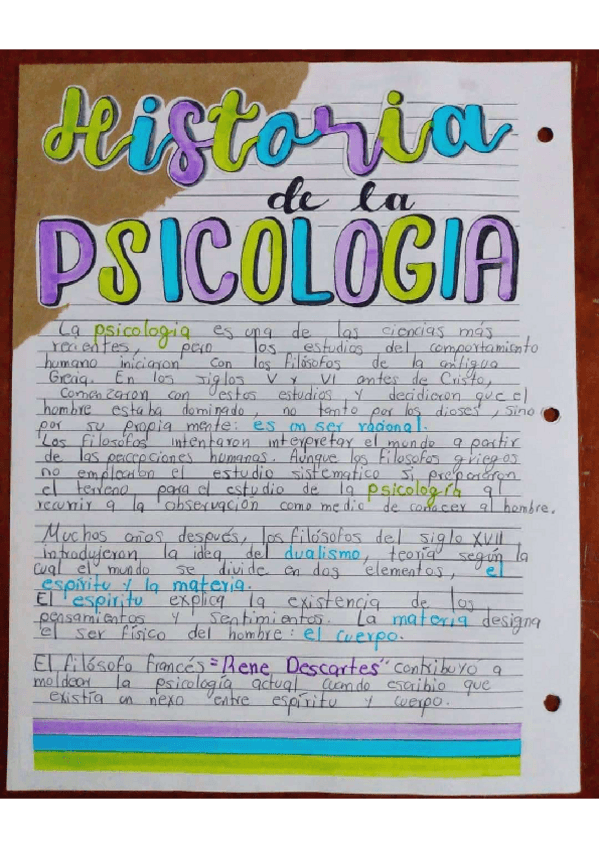 Historia
de la
PSICOLOGIA
La psicologia es una de las ciencias más
recientes, pero los estudios del comportamiento
humano iniciaron con los filósofos de la antigua
Grecia. En los siglos V y VI antes de Cristo,
comenzaron con estos estudios y decidieron que el
hombre estaba dominado, no tanto por los dioses, sino
por su propia mente: es un ser racional.
Los filosofos intentaron interpretar el mundo a partir
de las percepciones humanas. Aunque los filosofos griegos
no emplearon el estudio sistematico si prepararon
el terreno para el estudio de la psicología al
recurrir a la observación como medio de conocer al hombre.
Muchos años después, los filósofos del siglo XVII
introdujeron la idea del dualismo, teoría según la
cual el mundo se divide en dos elementos, el
espíritu y la materia.
El espiritu explica la existencia de los
pensamientos y sentimientos. La materia designa
el ser físico del hombre: el cuerpo.
El filósofo francés "Rene Descartes" contribuyó a
moldear la psicología actual cuando escribio que
existía un nexo entre espíritu y cuerpo.